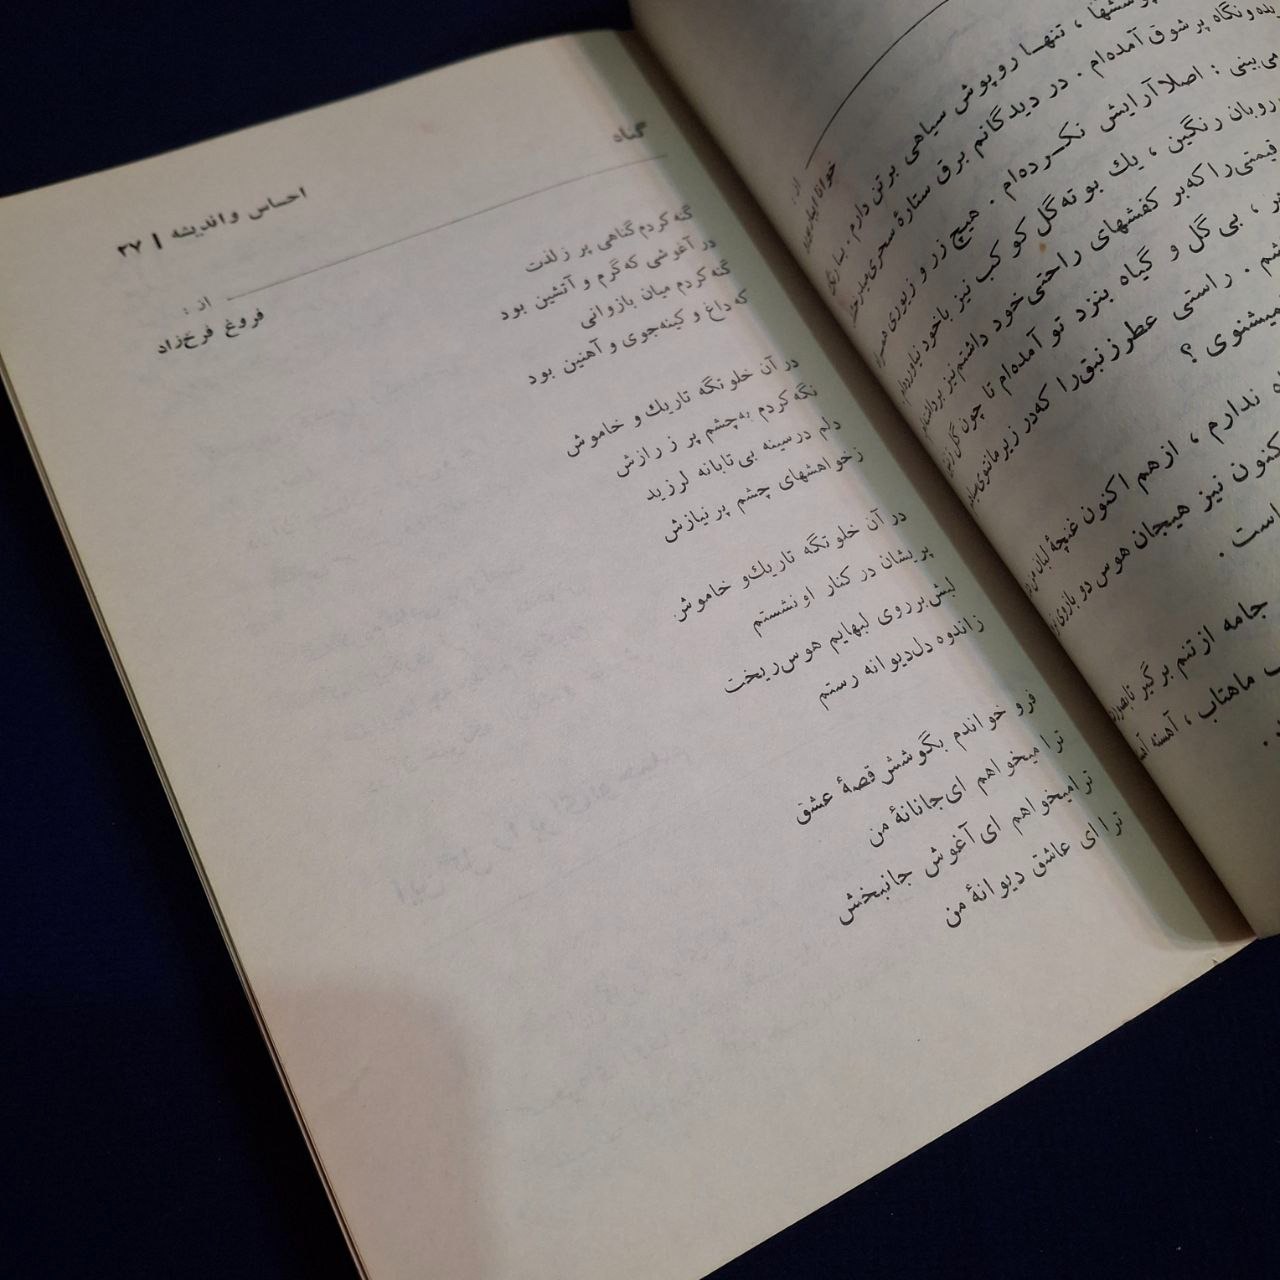 احساس و اندیشه | ۲۷
گناه
از :
فروغ فرخ‌زاد
گنه کردم گناهی پر ز لذت
در آغوشی که گرم و آتشین بود
گنه کردم میان بازوانی
که داغ و کینه‌جوی و آهنین بود
در آن خلوتگه تاریك و خاموش
نگه کردم به‌چشم پر ز رازش
دلم در سینه بی‌تابانه لرزید
زخواهشهای چشم پر نیازش
در آن خلوتگه تاریك و خاموش
پریشان در کنار او نشستم
لبش بر روی لبهایم هوس ریخت
ز اندوه دل دیوانه رستم
فرو خواندم بگوشش قصهٔ عشق
ترا میخواهم ای جانانهٔ من
ترا میخواهم ای آغوش جانبخش
ترا ای عاشق دیوانهٔ من
از :
، تنهـا روپوش سیاهی بر تن دارم .
و نگاه پر شوق آمده‌ام . در دیدگانم برق ستارهٔ سحری
می‌بینی : اصلا آرایش نکـرده‌ام . هیچ زر و زیوری
روبان رنگین ، یك بوته گل کوکب نیز باخود نیاورده‌ام .
قیمتی را که بر کفشهای راحتی خود داشتم نیز
، بی گل و گیاه بنزد تو آمده‌ام تا چون گل
. راستی عطر زنبق را که در زیر مانتوی
میشنوی ؟
ندارم ، از هم اکنون غنچهٔ لبان من
کنون نیز هیجان هوس دو بازوی
است .
جامه از تنم برگیر
ماهتاب ، آهسته